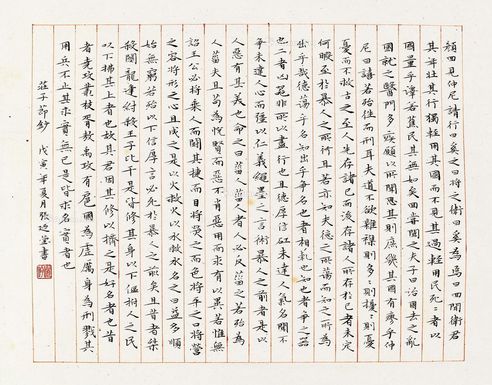 顏回見仲尼請行曰奚之曰將之衛曰奚為焉曰回聞衛君
其年壯其行獨輕用其國而不見其過輕用民死〻者以
國量乎澤若蕉民其無如矣回嘗聞之夫子曰治國去之亂
國就之醫門多疾願以所聞思其則庶幾其國有瘳乎仲
尼曰譆若殆往而刑耳夫道不欲雜〻則多〻則擾〻則憂
憂而不救古之至人先存諸己而後存諸人所存於己者未定
何暇至於暴人之所行且若亦知夫德之所蕩而知之所為
出乎哉德蕩乎名知出乎爭名也者相軋也知也者爭之器
也二者凶器非所以盡行也且德厚信矼未達人氣名聞不
爭未達人心而強以仁義繩墨之言術暴人之前者是以
人惡有其美也命之曰菑人〻者人必反菑之若殆為
人菑夫且苟為悅賢而惡不肖惡用而求有以異若惟無
詔王公必將乘人而鬭其捷而目將熒之而色將平之口將營
之容將形之心且成之是以火救火以水救水名之曰益多順
始無窮若殆以不信厚言必死於暴人之前矣且昔者桀
殺關龍逢紂殺王子比干是皆修其身以下傴拊人之民
以下拂其上者也故其君因其修以擠之是好名者也昔
者堯攻叢枝胥敖禹攻有扈國為虛厲身為刑戮其
用兵不止其求實無已是皆求名實者也
莊子節鈔 戊寅年夏月張堂書